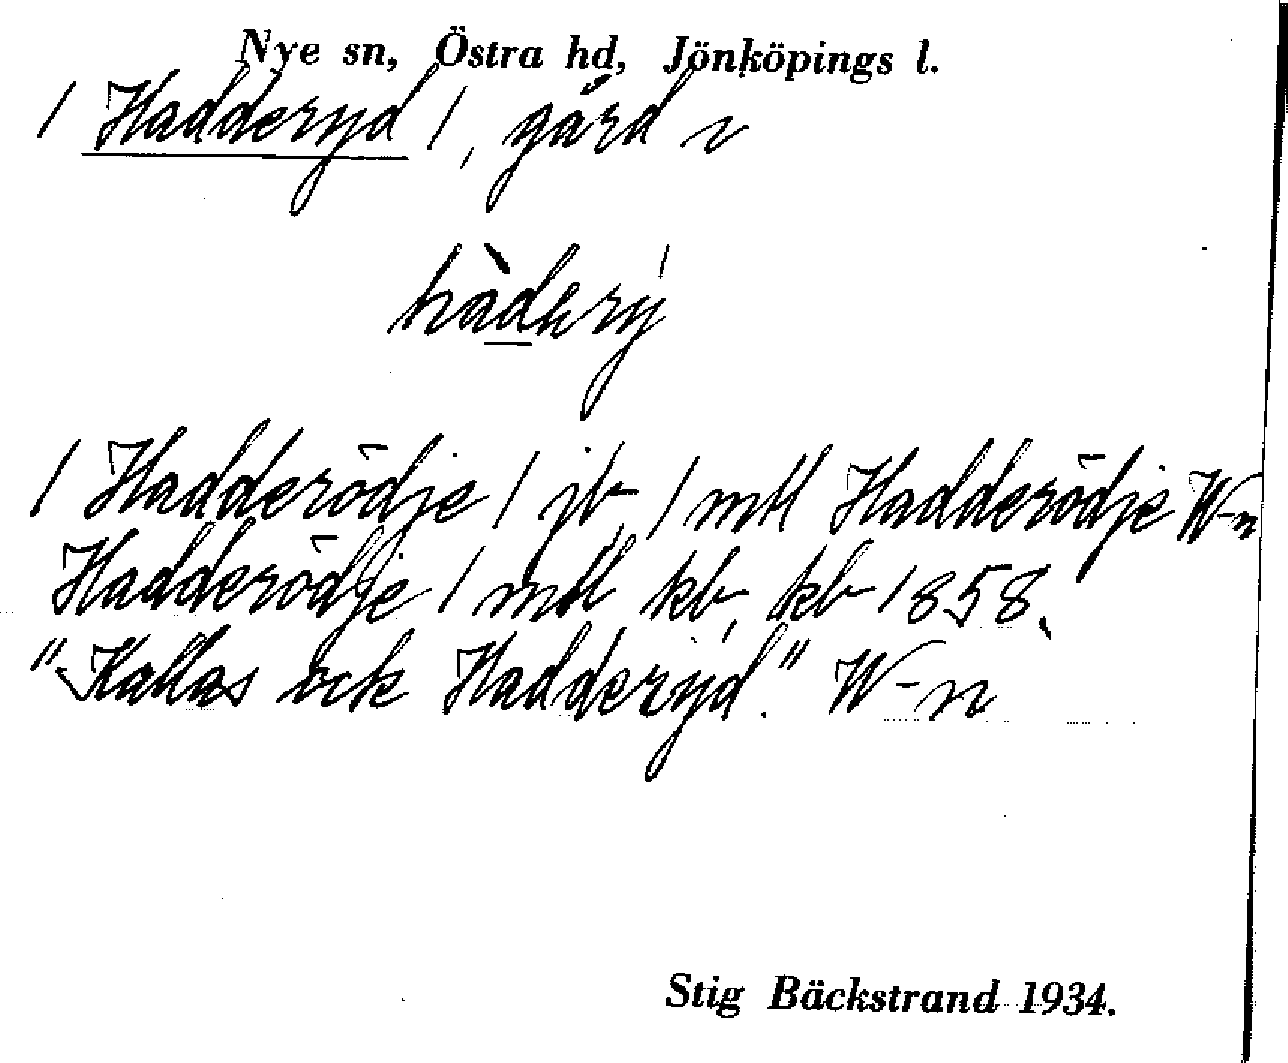 Nye sn, Östra hd, Jönköpings l.
/ Hadderyd /, gård v
hàdery̍
/ Hadderödje / jb, / mtl Hadderödje W-n
Hadderödje / mtl kb, kb 1858.
"Kallas ock Hadderyd." W-n
Stig Bäckstrand 1934.